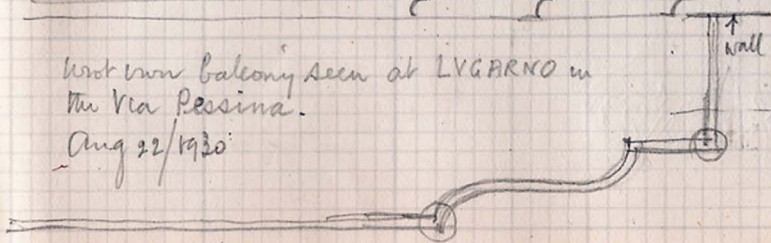 wrot iron balcony seen at LVGARNO in
the Via Pessina.
Aug 22/1930
wall